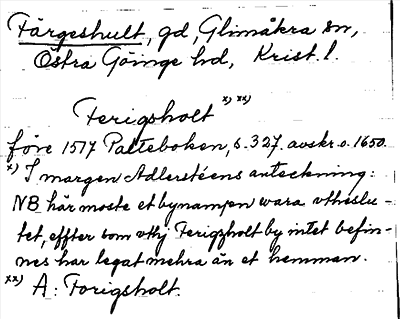 Färgeshult, gd, Glimåkra sn,
Östra Göinge hd, Krist. l.
Ferigsholt x) xx)
före 1517 Palteboken, s. 327. avskr. o. 1650.
x) I margen Adlersténs anteckning:
NB här moste et bynampn wara vtheslu-
tet, effter som vthj Ferigzholt by intet befin-
nes har legat mehra än et hemman.
xx) A: Forigsholt.